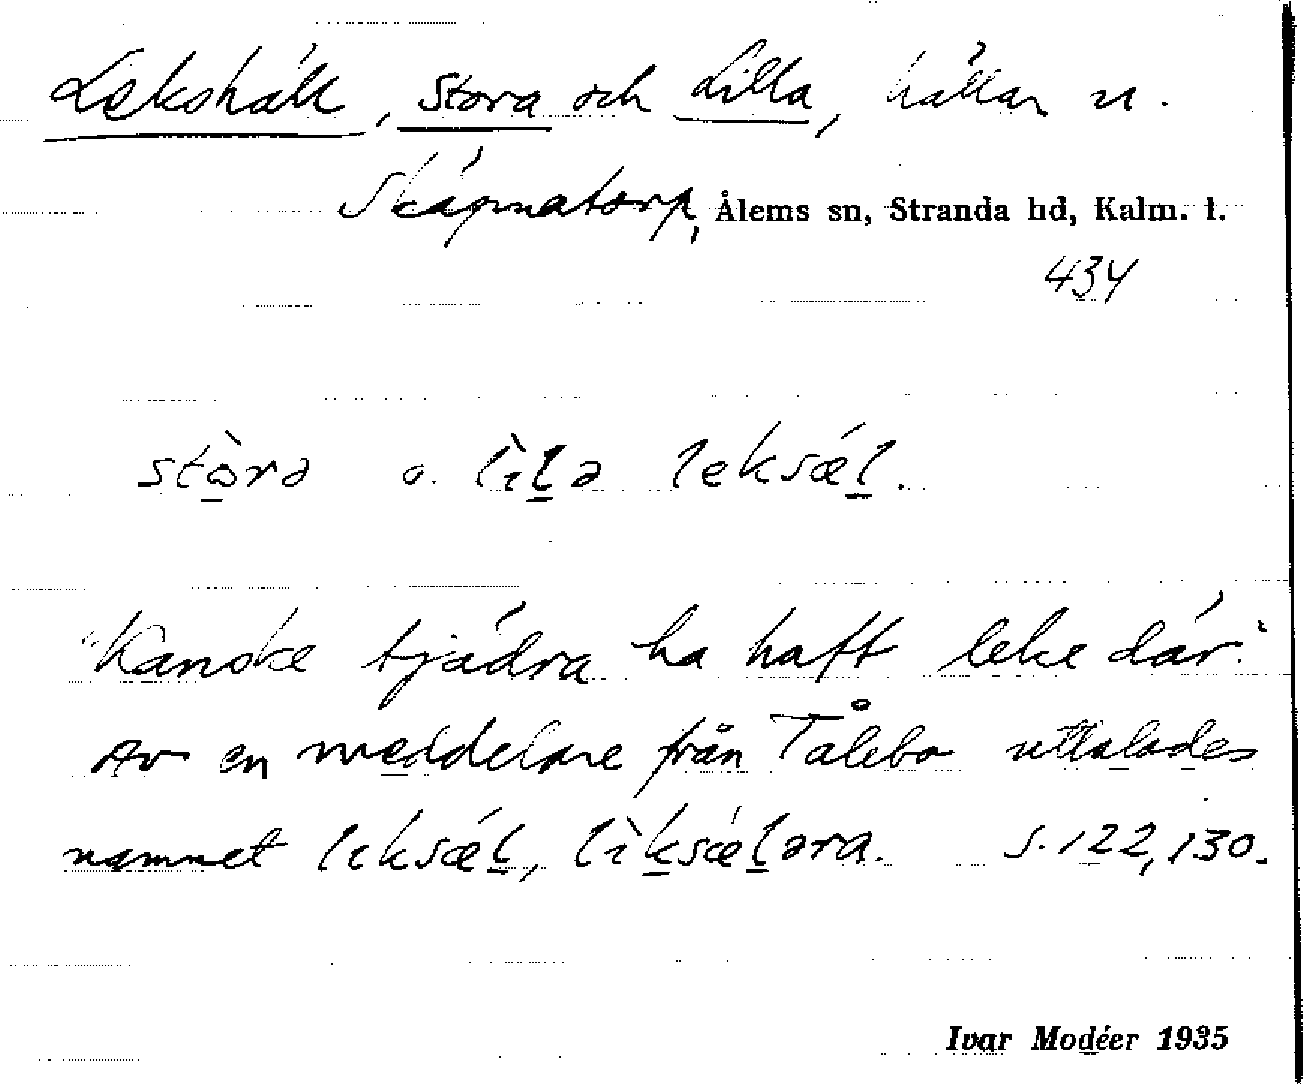 Lekshäll, Stora och Lilla, hällar n.
Skäpnatorp, Ålems sn, Stranda hd, Kalm. l.
434
stòrə o. lìlə leksæ´l.
"Kanske tjädra ha haft leke där."
Av en meddelare från Tålebo uttalades
namnet leksæ´l, lìksæ´ləra. s. 122, 130.
Ivar Modéer 1935